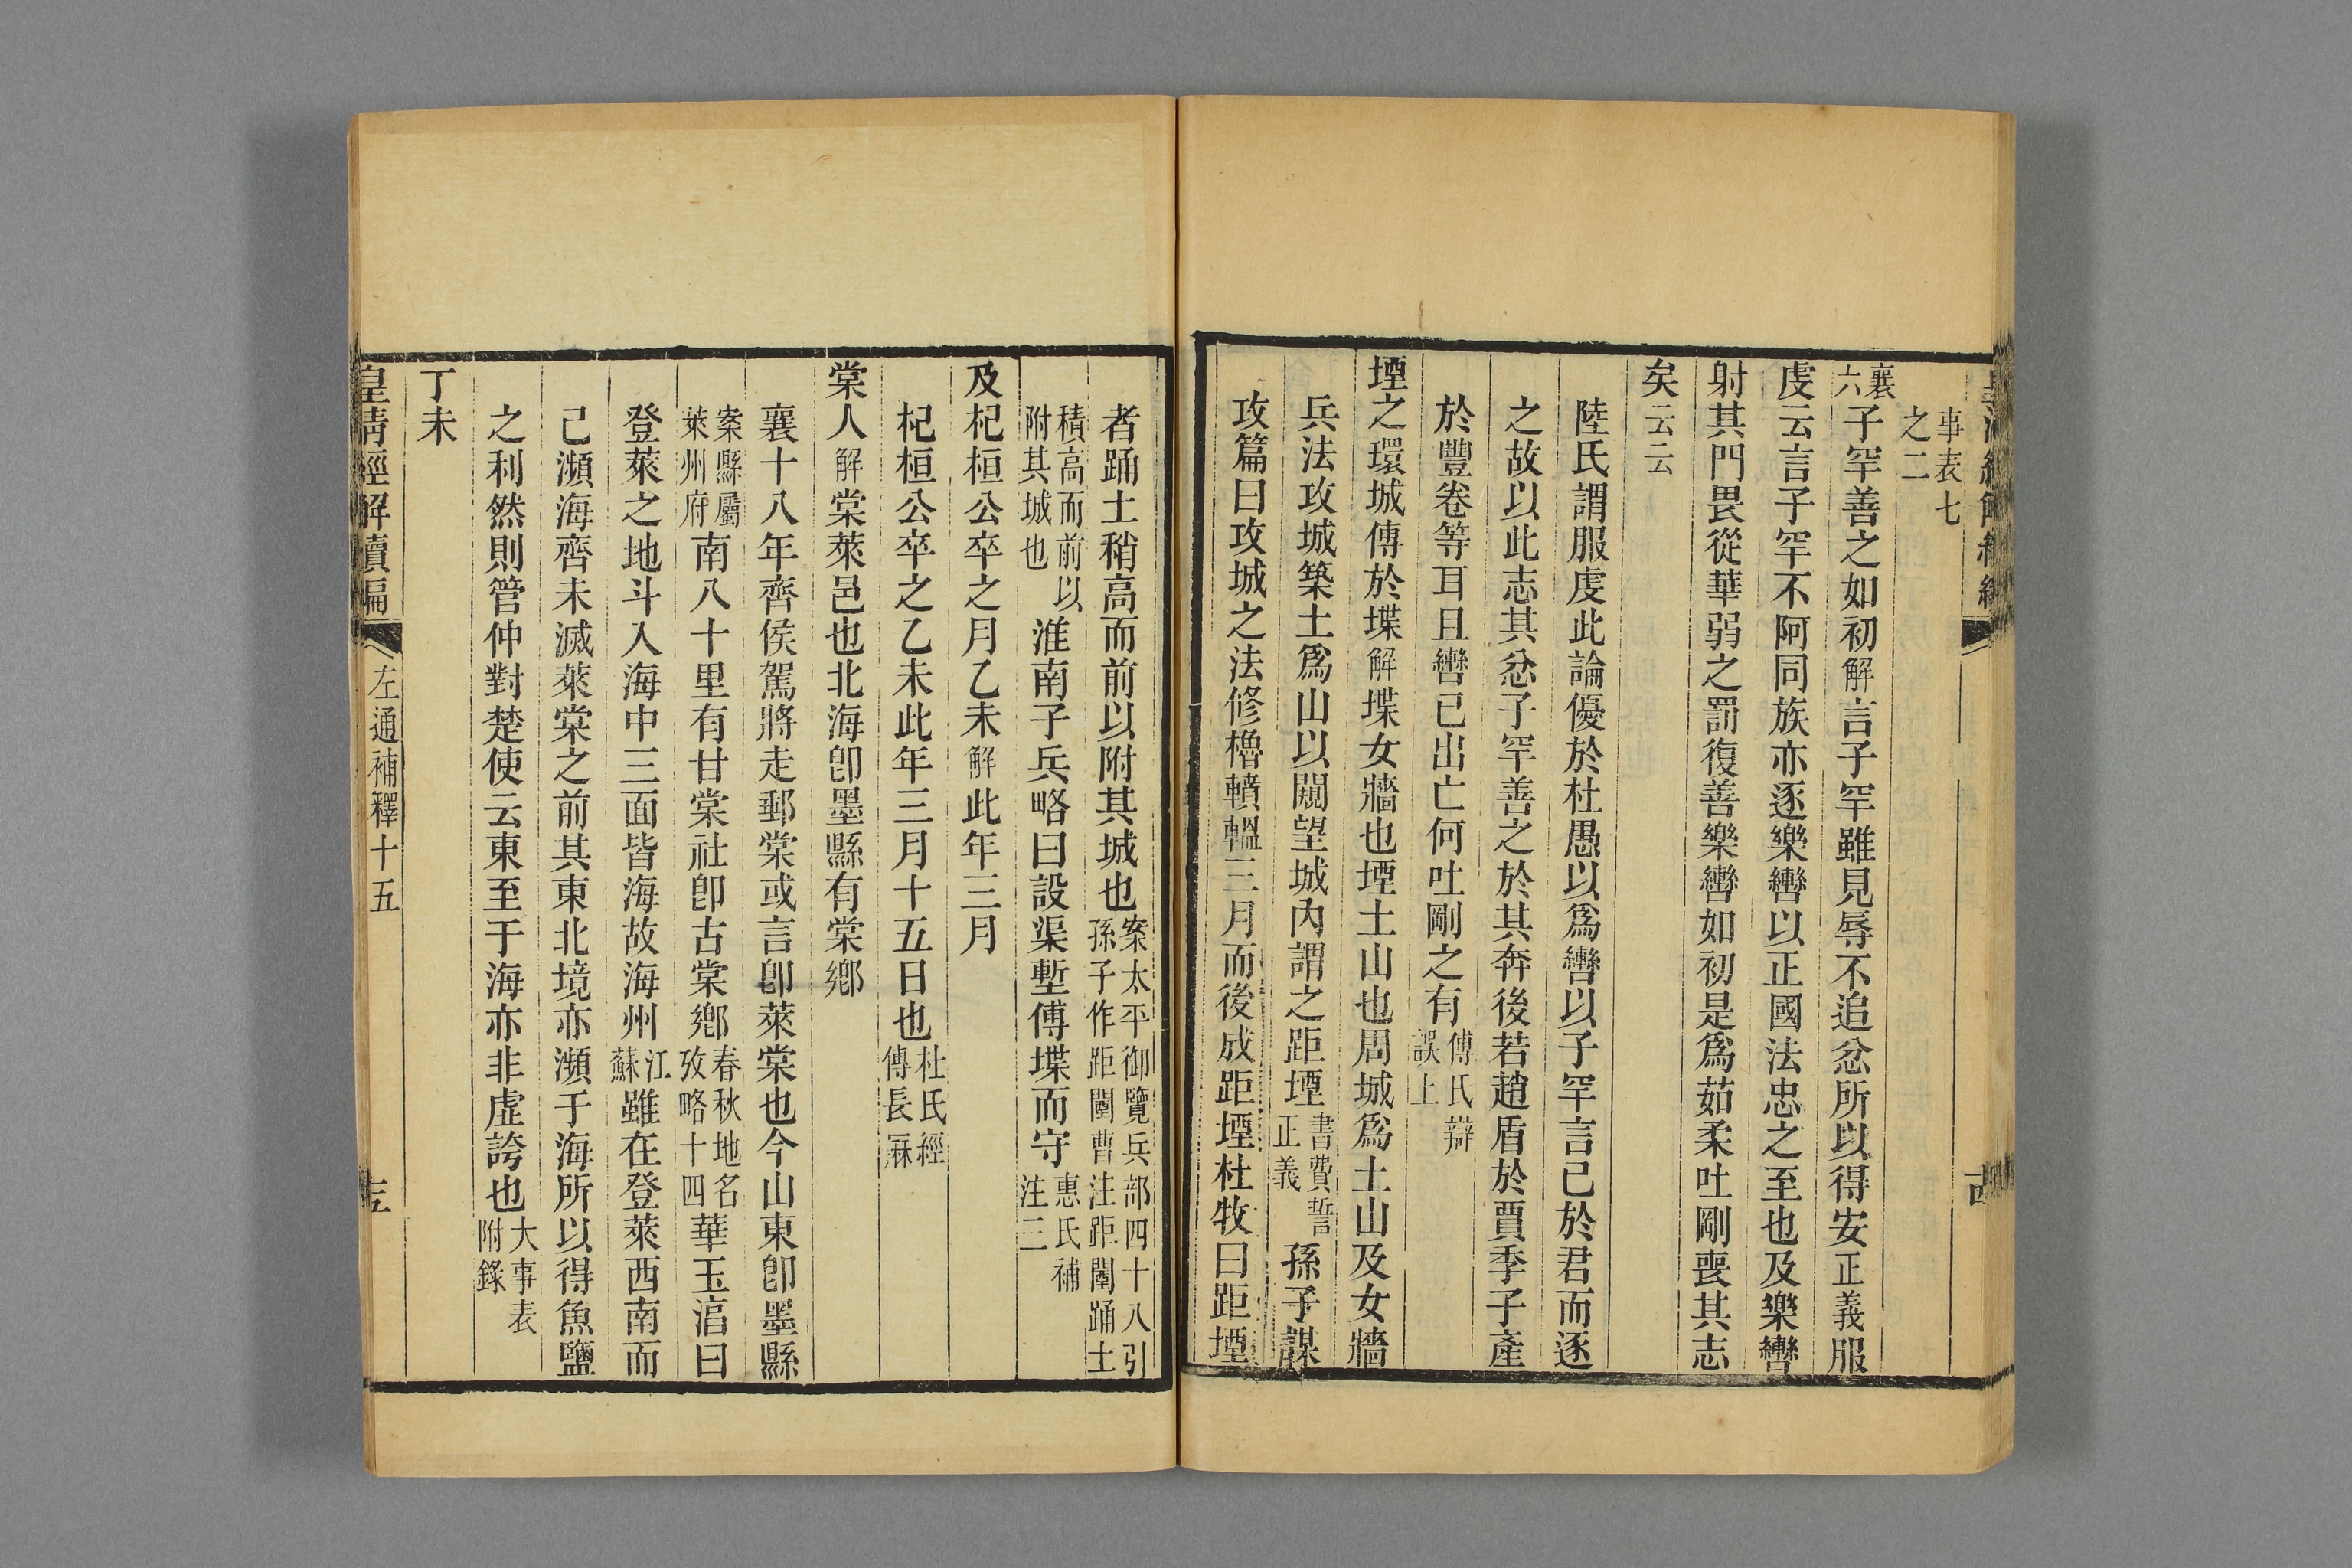 事表七之二
襄六子罕善之如初解言子罕雖見辱不追忿所以得安正義服
虔云言子罕不阿同族亦逐樂轡以正國法忠之至也及樂轡
射其門畏從華弱之罰復善樂轡如初是爲茹柔吐剛喪其志
矣云云
陸氏謂服虔此論優於杜愚以爲轡以子罕言已於君而逐
之故以此志其忿子罕善之於其奔後若趙盾於賈季子產
於豐卷等耳且轡已出亡何吐剛之有傅氏辯誤上
堙之環城傅於堞解堞女牆也堙土山也周城爲土山及女牆
兵法攻城築土爲山以闚望城內謂之距堙書費誓正義孫子謀
攻篇曰攻城之法修櫓轒轀三月而後成距堙杜牧曰距堙
者踊土稍高而前以附其城也案太平御覽兵部四十八引孫子作距闉曹注距闉踊土
積高而前以附其城也淮南子兵略曰設渠塹傅堞而守惠氏補注三
及杞桓公卒之月乙未解此年三月
杞桓公卒之乙未此年三月十五日也杜氏經傳長厤
棠人解棠萊邑也北海卽墨縣有棠鄉
襄十八年齊侯駕將走郵棠或言卽萊棠也今山東卽墨縣
案縣屬萊州府南八十里有甘棠社卽古棠鄉春秋地名攷略十四華玉㴑曰
登萊之地斗入海中三面皆海故海州江蘇雖在登萊西南而
己瀕海齊未滅萊棠之前其東北境亦瀕于海所以得魚鹽
之利然則管仲對楚使云東至于海亦非虛誇也大事表附錄
丁未
皇清經解續編
左通補釋十五